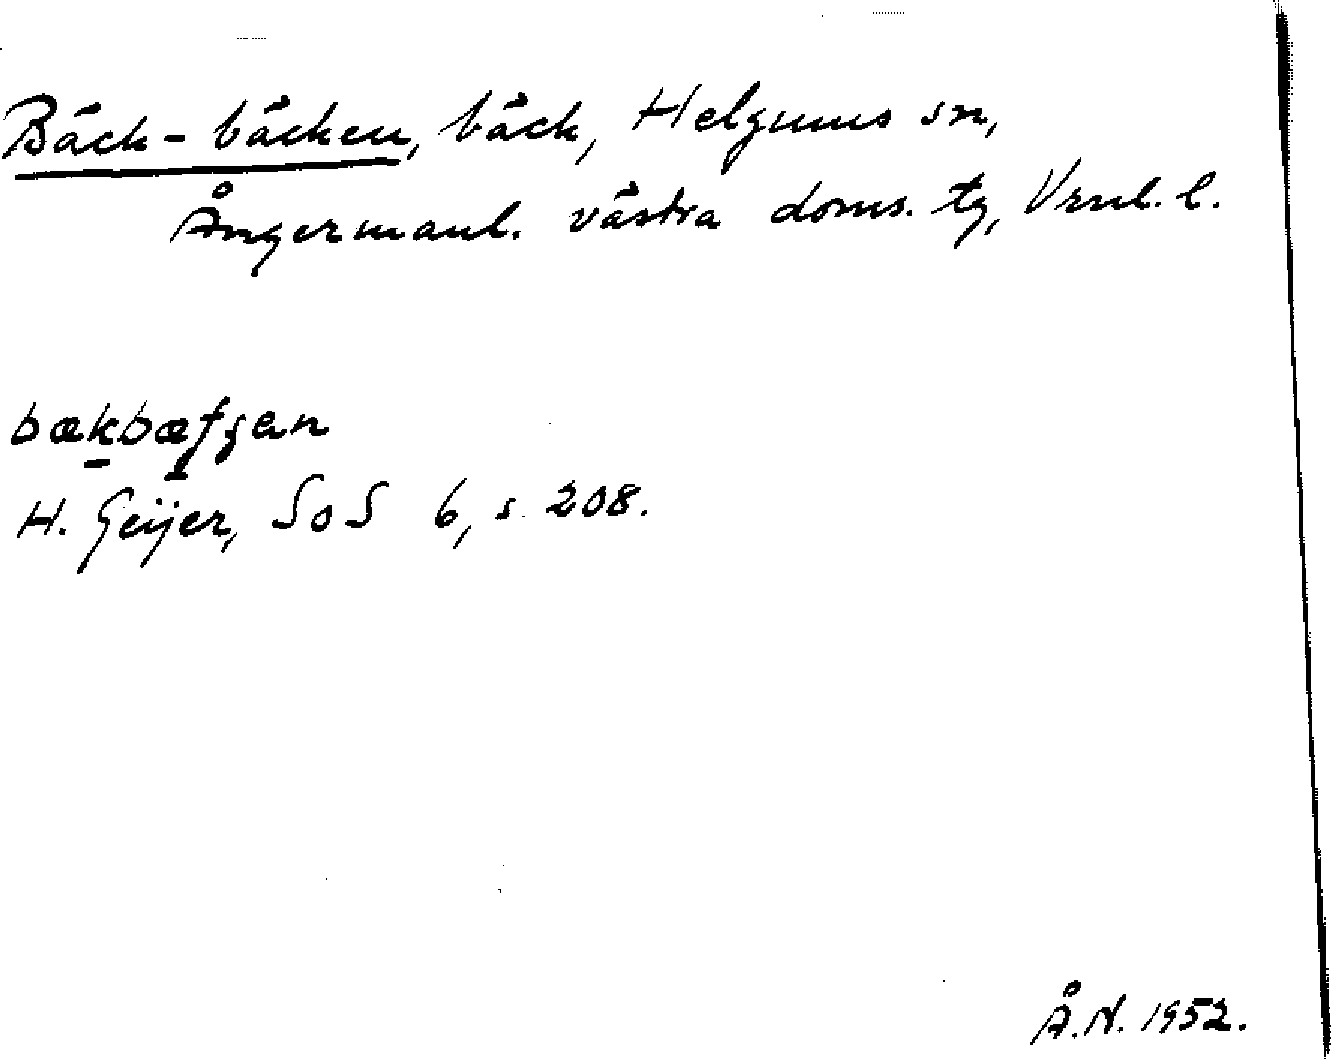 Bäck-bäcken, bäck, Helgums sn,
Ångermanl. västra doms. tg, Vrnl. l.
H. Geijer, SoS 6, s. 208.
Å.N. 1952.